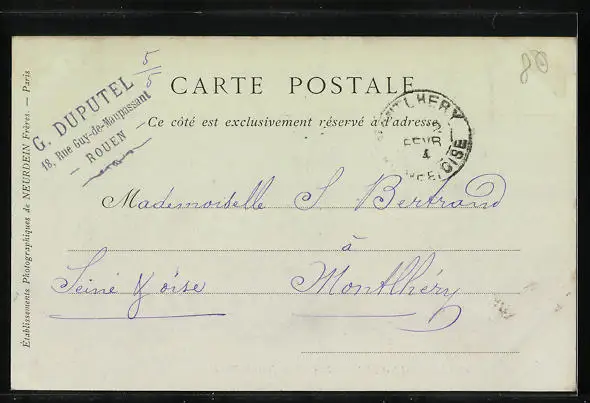 5/5
80
G. DUPUTEL
18, Rue Guy-de-Maupassant
- ROUEN -
CARTE POSTALE
Ce côté est exclusivement réservé à l'adresse
MONTLHERY
2
FEVR
4
OISE
Mademoiselle S. Bertrand
à
Seine & Oise Montlhéry
Établissements Photographiques de NEURDEIN Frères. — Paris